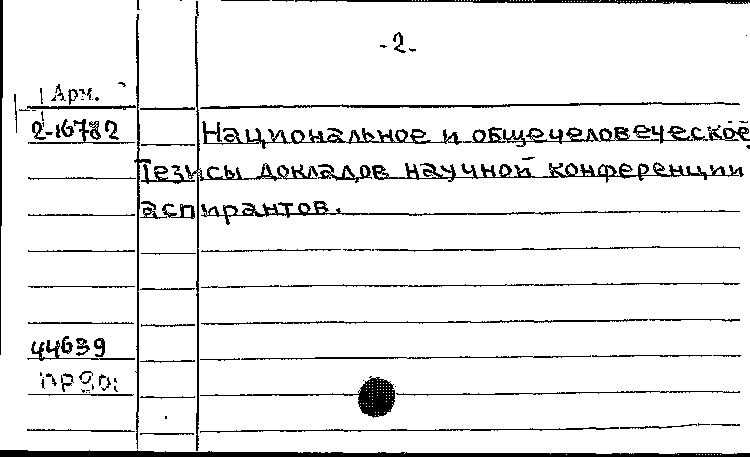 -2-
Арм.
2-16782
Национальное и общечеловеческое
Тезисы докладов научной конференции
аспирантов.
44639